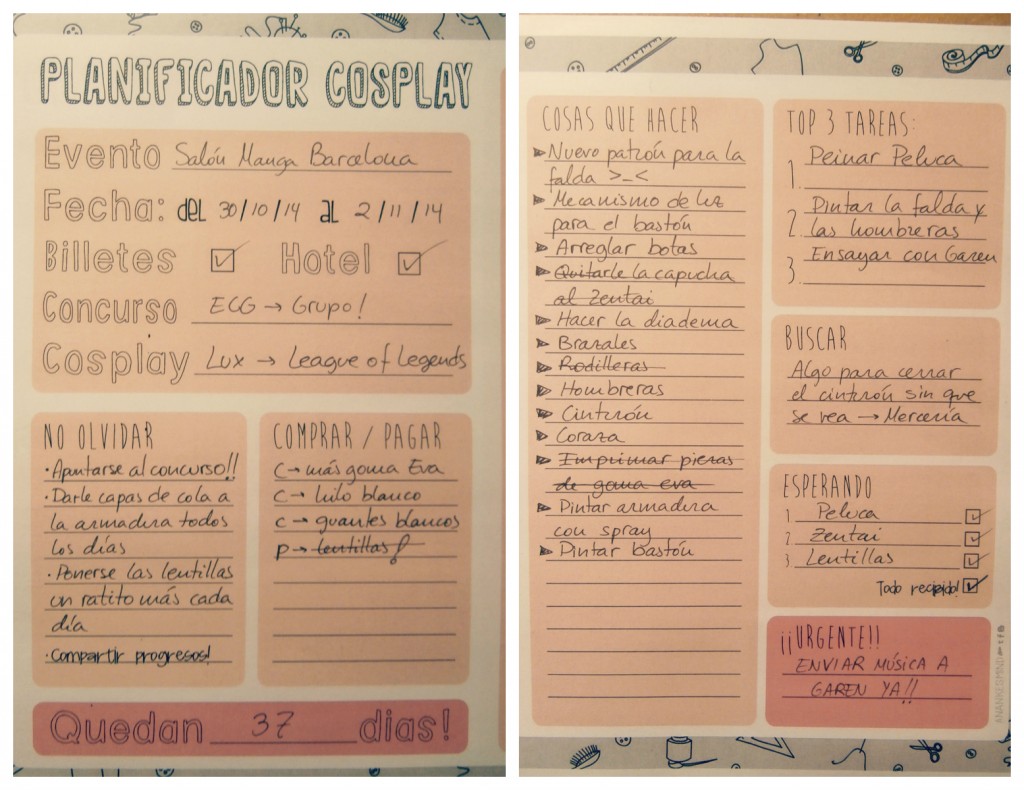 PLANIFICADOR COSPLAY
Evento Salón Manga Barcelona
Fecha: del 30/10/14 al 2/11/14
Billetes ☑ Hotel ☑
Concurso ECG → Grupo!
Cosplay Lux → League of Legends
NO OLVIDAR
· Apuntarse al concurso!!
· Darle capas de cola a
la armadura todos
los días
· Ponerse las lentillas
un ratito más cada
día
· Compartir progresos!
COMPRAR / PAGAR
C → más goma Eva
C → hilo blanco
C → guantes blancos
P → lentillas!
Quedan 37 días!
COSAS QUE HACER
Nuevo patrón para la
falda >_<
Mecanismo de luz
para el bastón
Arreglar botas
Quitarle la capucha
al Zentai
Hacer la diadema
Brazales
Rodilleras
Hombreras
Cinturón
Coraza
Imprimir piezas
de goma eva
Pintar armadura
con spray
Pintar bastón
TOP 3 TAREAS:
1. Peinar Peluca
2. Pintar la falda y
las hombreras
3. Ensayar con Garen
BUSCAR
Algo para cerrar
el cinturón sin que
se vea → Mercería
ESPERANDO
1 Peluca ☑
2 Zentai ☑
3 Lentillas ☑
Todo recibido! ☑
¡¡URGENTE!!
ENVIAR MÚSICA A
GAREN YA!!
ANANKESMIND